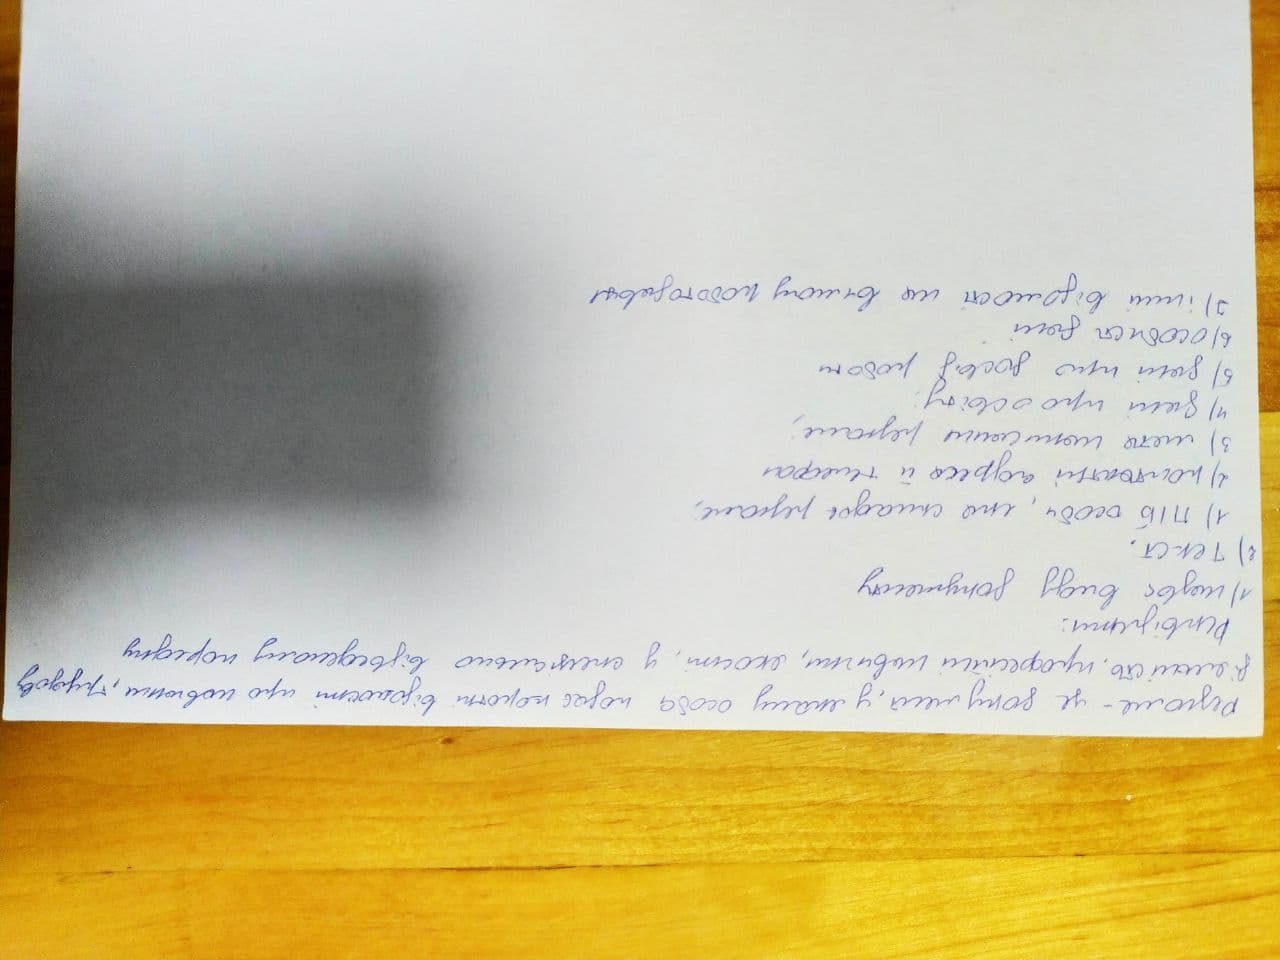 Резюме - це документ, у якому особа подає короткі відомості про навчання, трудову
діяльність, професійні навички, якості, у спеціально відведеному порядку
Реквізити:
1) назва виду документу
2) Текст.
1) ПІБ особи, яка складає резюме;
2) контактні адреса й телефон
3) мета написання резюме;
4) дані про освіту;
5) дані про досвід роботи
6) особисті дані
7) інші відомості на вимогу роботодавця